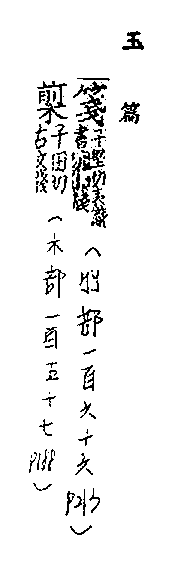 玉篇
箋 子堅切表識
書 (竹部一百六十六 P213)
子田切
古文牋 (木部一百五十七 P188)